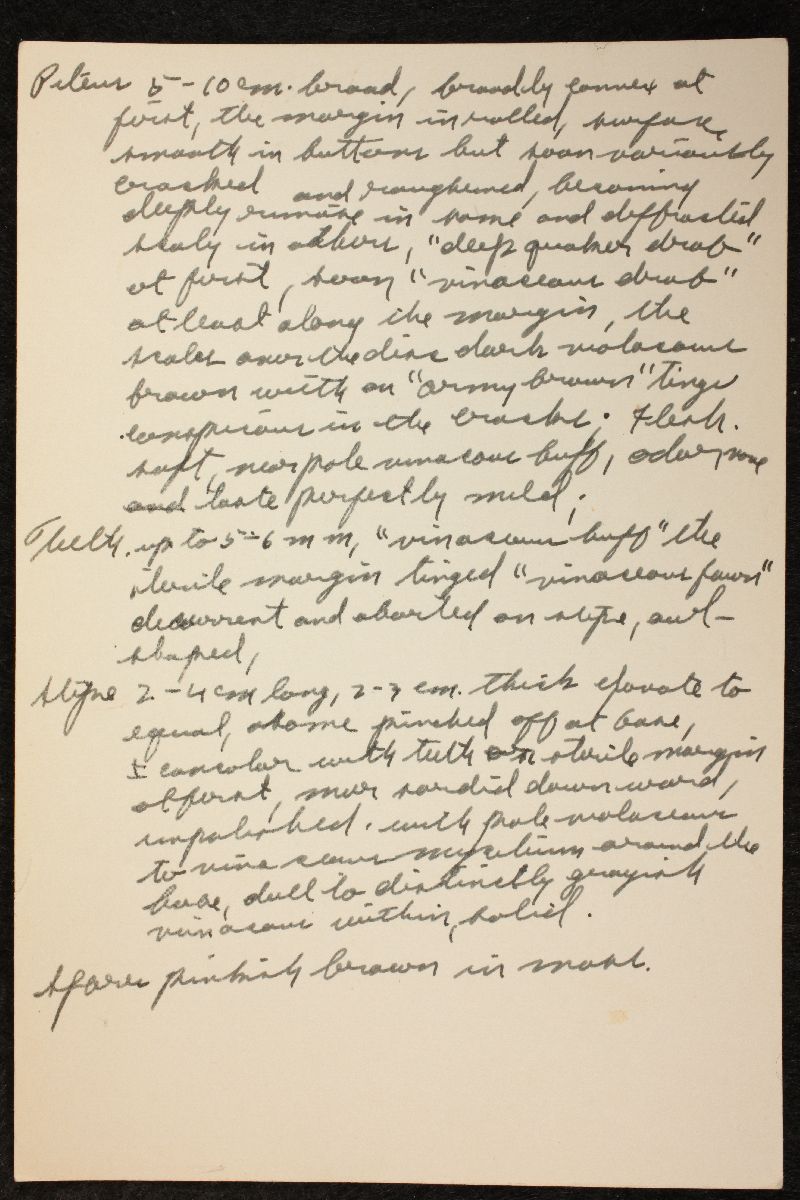 Pileus 5-10 cm. broad, broadly convex at
first, the margin inrolled, surface
smooth in buttons but soon variously
cracked and roughened, becoming
deeply rimose in some and diffracted
scaly in others, "deep quaker drab"
at first, soon "vinaceous drab"
at least along the margin, the
scales over the disc dark violaceous
brown with an "army brown" tinge
conspicuous in the cracks; Flesh.
soft, near pale vinaceous buff, odor none
and taste perfectly mild;
Teeth. up to 5-6 mm, "vinaceous buff" the
sterile margin tinged "vinaceous fawn"
decurrent and aborted on stipe, awl-
shaped,
Stipe 2-4 cm long, 2-3 cm. thick clavate to
equal, some pinched off at base,
± concolor with teeth or sterile margin
at first, more sordid downward,
unpolished. with pale violaceous
to vinaceous mycelium around the
base, dull to distinctly grayish
vinaceous within, solid.
Spores pinkish brown in mass.